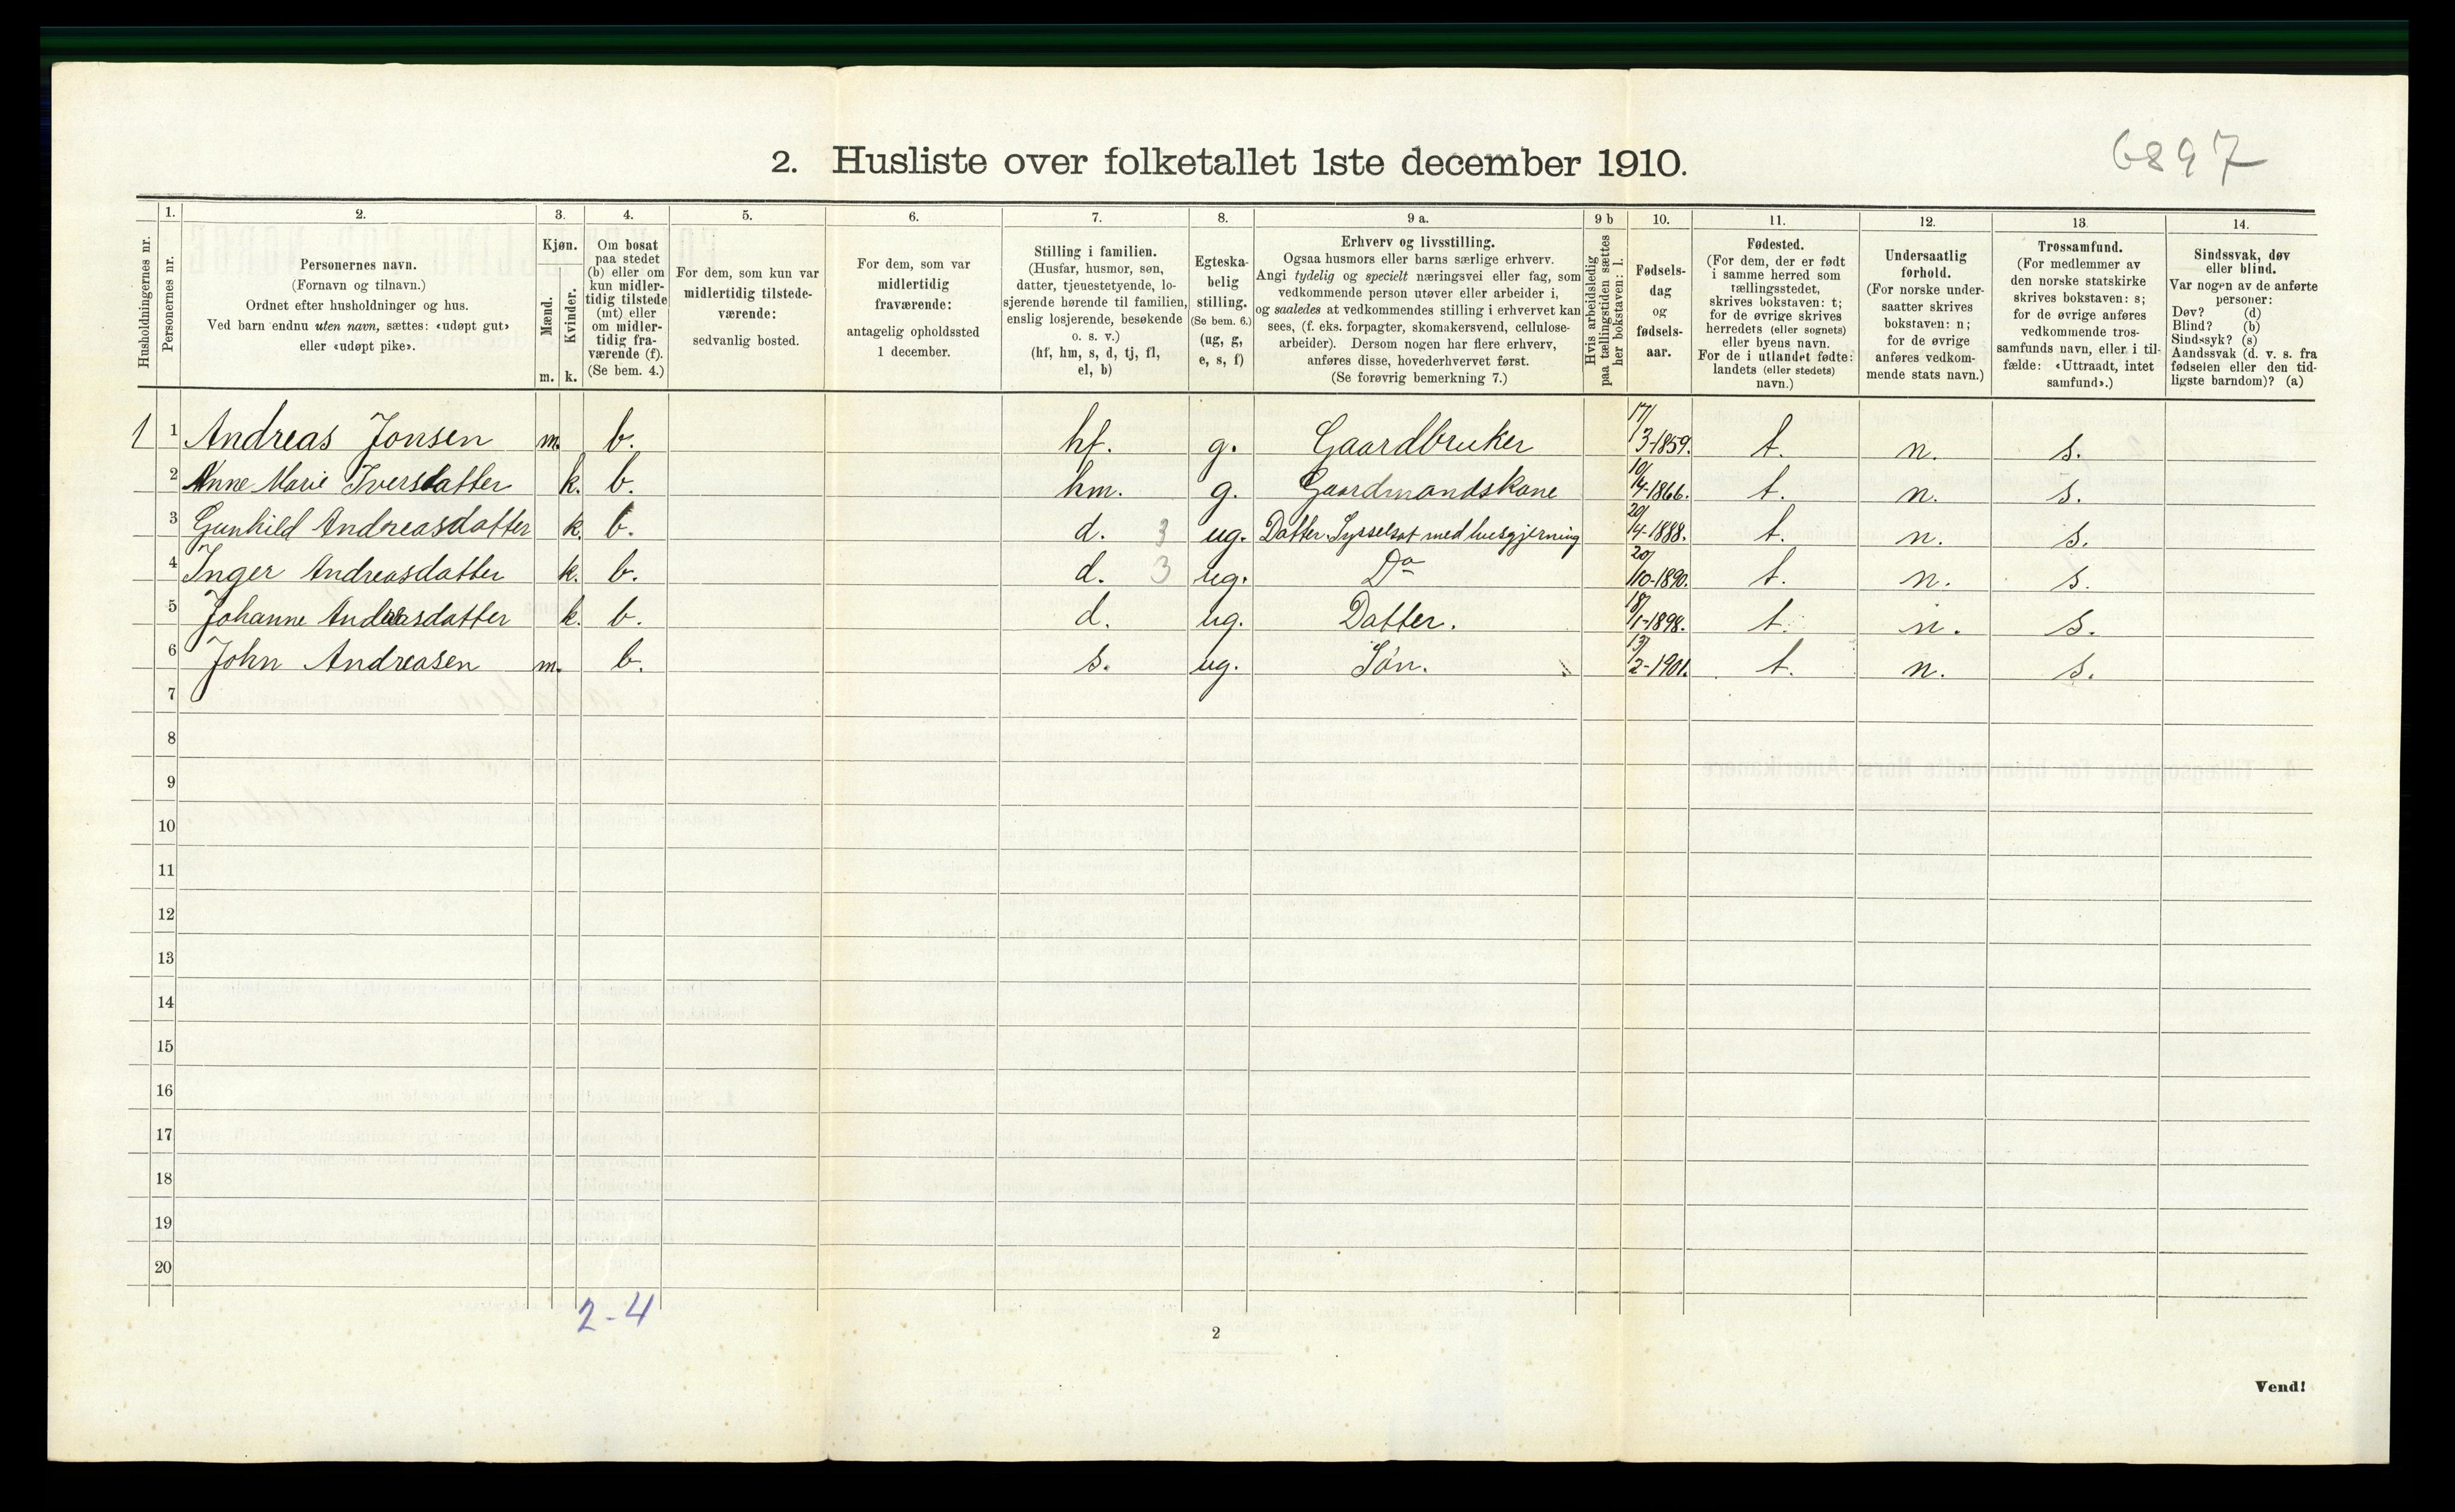 6897
2. Husliste over folketallet 1ste december 1910.
Husholdningernes nr.
1.
Personernes nr.
2.
Personernes navn.
(Fornavn og tilnavn.)
Ordnet efter husholdninger og hus.
Ved barn endnu uten navn, sættes: «udøpt gut»
eller «udøpt pike».
3.
Kjøn.
Mænd.
Kvinder.
m. k.
4.
Om bosat
paa stedet
(b) eller om
kun midler-
tidig tilstede
(mt) eller
om midler-
tidig fra-
værende (f).
(Se bem. 4.)
5.
For dem, som kun var
midlertidig tilstede-
værende:
sedvanlig bosted.
6.
For dem, som var
midlertidig
fraværende:
antagelig opholdssted
1 december.
7.
Stilling i familien.
(Husfar, husmor, søn,
datter, tjenestetyende, lo-
sjerende hørende til familien,
enslig losjerende, besøkende
o. s. v.)
(hf, hm, s, d, tj, fl,
el, b)
8.
Egteska-
belig
stilling.
(Se bem. 6.)
(ug, g,
e, s, f)
9 a.
Erhverv og livsstilling.
Ogsaa husmors eller barns særlige erhverv.
Angi tydelig og specielt næringsvei eller fag, som
vedkommende person utøver eller arbeider i,
og saaledes at vedkommendes stilling i erhvervet kan
sees, (f. eks. forpagter, skomakersvend, cellulose-
arbeider). Dersom nogen har flere erhverv,
anføres disse, hovederhvervet først.
(Se forøvrig bemerkning 7.)
9 b
Hvis arbeidsledig
paa tællingstiden sættes
her bokstaven: l.
10.
Fødsels-
dag
og
fødsels-
aar.
11.
Fødested.
(For dem, der er født
i samme herred som
tællingsstedet,
skrives bokstaven: t;
for de øvrige skrives
herredets (eller sognets)
eller byens navn.
For de i utlandet fødte:
landets (eller stedets)
navn.)
12.
Undersaatlig
forhold.
(For norske under-
saatter skrives
bokstaven: n;
for de øvrige
anføres vedkom-
mende stats navn.)
13.
Trossamfund.
(For medlemmer av
den norske statskirke
skrives bokstaven: s;
for de øvrige anføres
vedkommende tros-
samfunds navn, eller i til-
fælde: «Uttraadt, intet
samfund».)
14.
Sindssvak, døv
eller blind.
Var nogen av de anførte
personer:
Døv? (d)
Blind? (b)
Sindssyk? (s)
Aandssvak (d. v. s. fra
fødselen eller den tid-
ligste barndom)? (a)
1 1 Andreas Jonsen m. b. hf. g. Gaardbruker 17/3-1859. t. n. s.
2 Anne Marie Iversdatter k. b. hm. g. Gaardmandskone 10/4-1866. t. n. s.
3 Gunhild Andreasdatter k. b. d. 3 ug. Datter. Sysselsat med husgjerning 20/4-1888. t. n. s.
4 Inger Andreasdatter k. b. d. 3 ug. Do 20/10-1890. t. n. s.
5 Johanne Andreasdatter k. b. d. ug. Datter. 18/1-1898. t. n. s.
6 John Andreasen m. b. s. ug. Søn. 13/2-1901. t. n. s.
7
8
9
10
11
12
13
14
15
16
17
18
19
20
2-4
2
Vend!